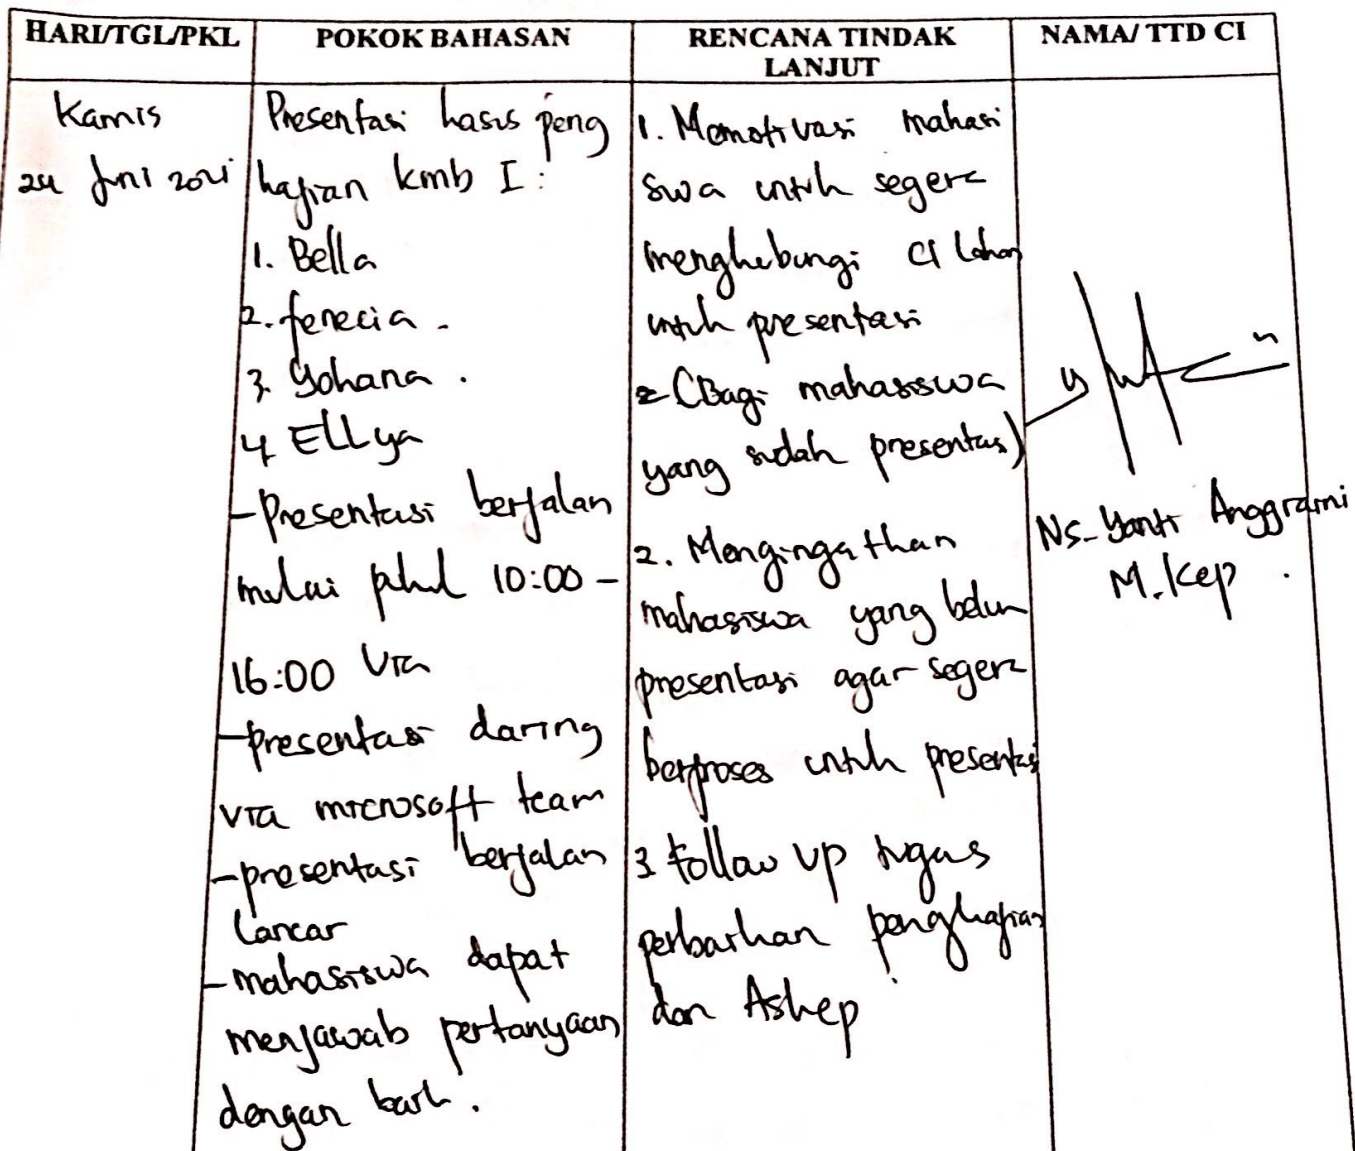 HARI/TGL/PKL
POKOK BAHASAN
RENCANA TINDAK
LANJUT
NAMA/ TTD CI
Kamis
24 Juni 2021
Presentasi kasus peng
kajian kmb I:
1. Bella
2. fenecia.
3. Yohana.
4. Ellya
- Presentasi berjalan
mulai pukul 10:00 -
16:00 via
- presentasi daring
via microsoft team
- presentasi berjalan
Lancar
- mahasiswa dapat
menjawab pertanyaan
dengan baik.
1. Memotivasi mahasi
swa untuk segera
menghubungi CI lahan
untuk presentasi
(Bagi mahasiswa
yang sudah presentasi)
2. Mengingatkan
mahasiswa yang belum
presentasi agar segera
berproses untuk presentasi
3. Follow up tugas
perbaikan pengkajian
dan Askep
Ns. Yanti Anggraini
M.Kep.